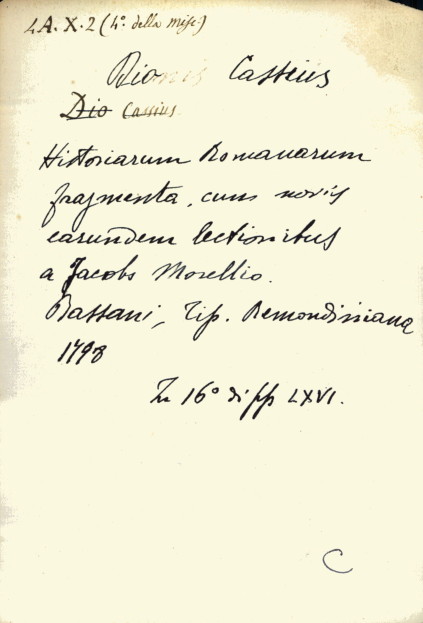 LA. X. 2 (4º. della misc.)
Dionis Cassius
Dio Cassius
Historiarum Romanarum
fragmenta, cum novis
earundem lectionibus
a Jacobo Morellio.
Bassani, Tip. Remondiniana
1798
In 16º di pp LXVI.
C